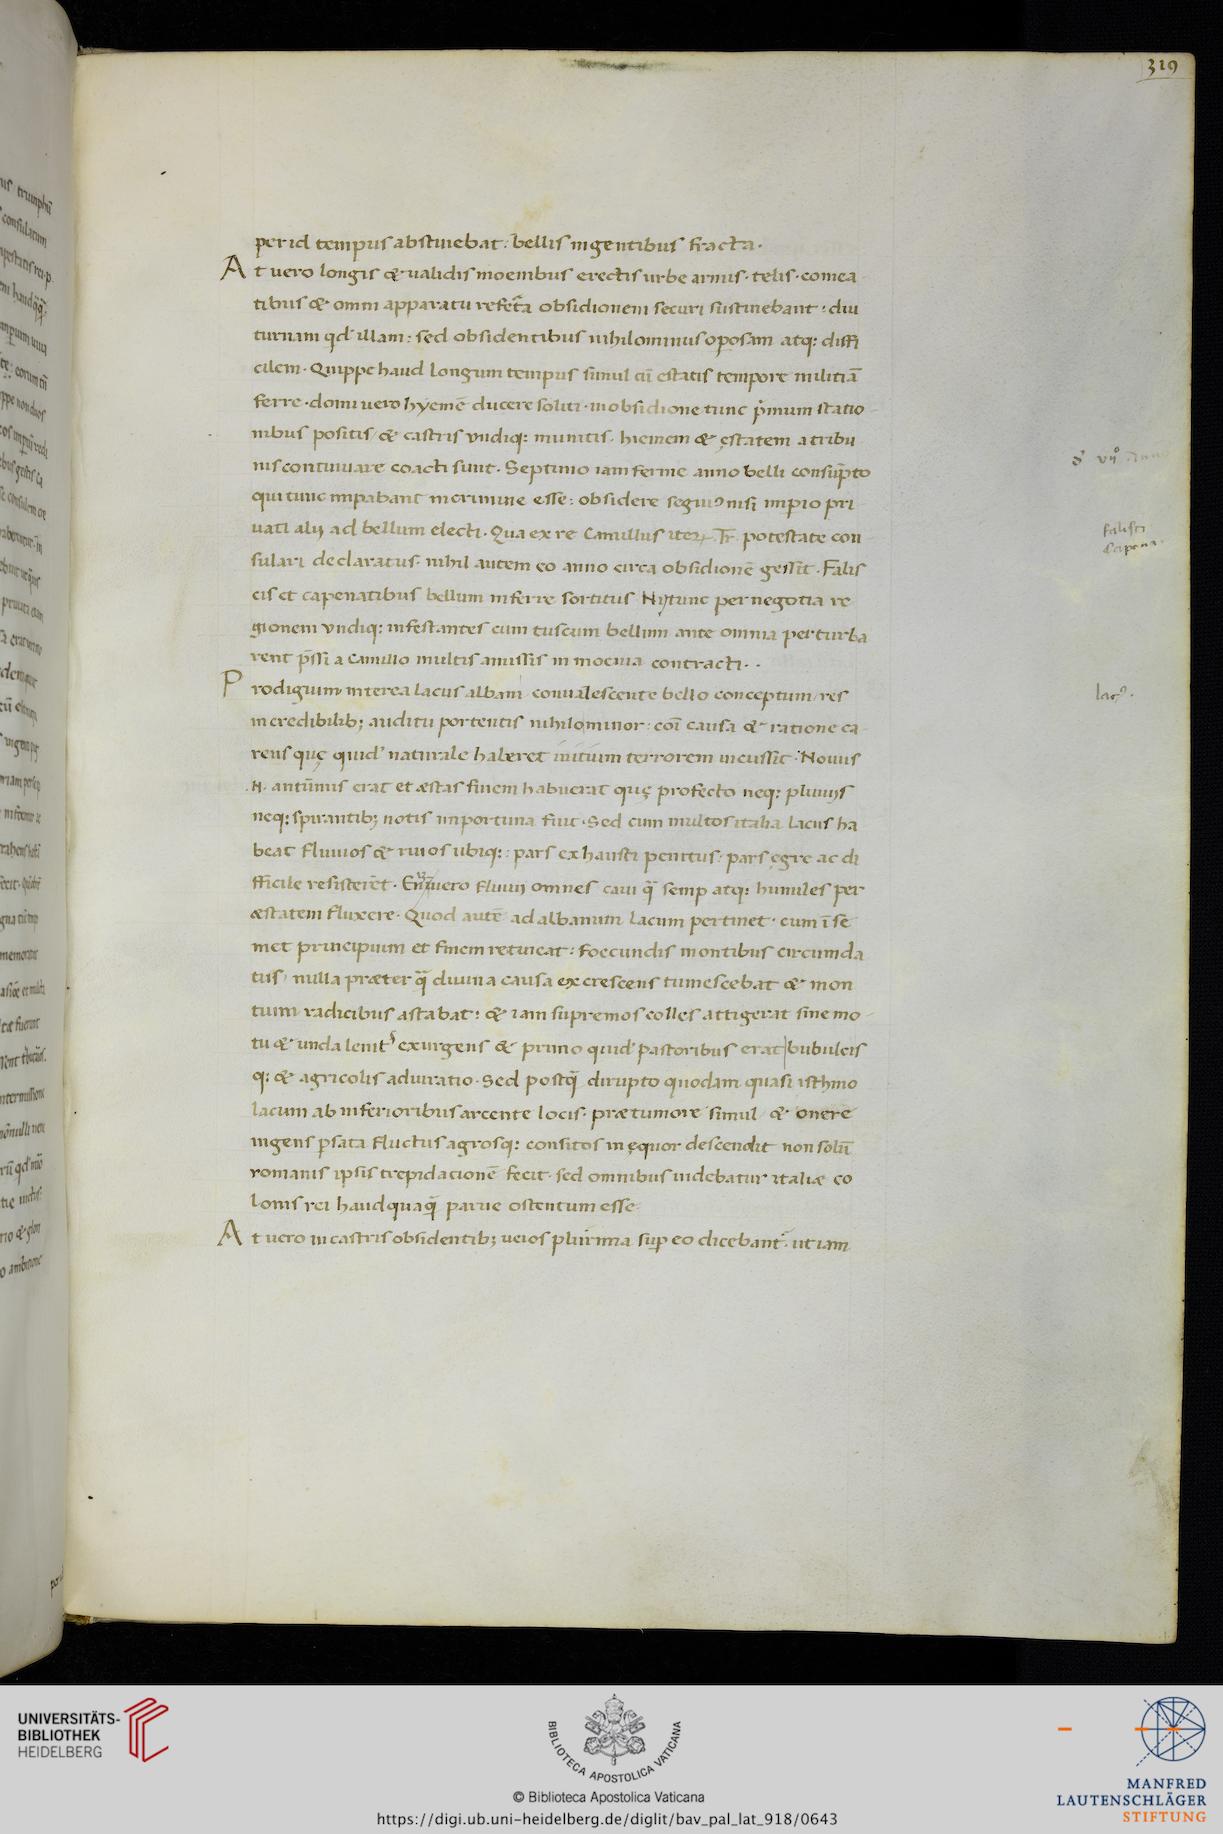 319
per id tempus abstinebat: bellis ingentibus fracta.
At vero longis & validis moenibus erectis urbe armis· telis· comea
tibus & omni apparatu refecta obsidionem securi sustinebant: diu
turnam qd' illam: sed obsidentibus nihilominus oposam atq: diffi
cilem· Quippe haud longum tempus simul cū estatis tempore militiā
ferre· domi vero hyemē ducere soliti· in obsidione tunc p̄mum statio
nibus positis/ & castris vndiq: munitis· hiemem & ęstatem a tribu
nis continuare coacti sunt· Septimo iam ferme anno belli consūpto
qui tunc impabant in crimine esse: obsidere segnius nisi impio pri
vati alij ad bellum electi· Qua ex re Camillus iteꝝ Tr̄ potestate con
sulari declaratus· nihil autem eo anno circa obsidionē gessit· Falis
cis et capenatibus bellum inferre sortitus· Nytunc per negotia re
gionem vndiq: infestantes cum tuscum bellum ante omnia perturba
rent p̄ssi a Camillo multis amissis in moenia contracti··
Prodigium interea lacus albani convalescente bello conceptum/ res
incredibilib; auditu portentis nihilominor: coī causa & ratione ca
rens quę quid' naturale haberet initium terrorem incussit· Novus
·N· antūmus erat et æstas finem habuerat quę profecto neq: pluvijs
neq: spirantib; notis importuna fuit· Sed cum multos italia lacus ha
beat fluvios & rivos ubiq: pars exhausti penitus· pars ęgre ac di
fficile resisterēt· vero fluvij omnes cavi q̄ semp atq: humiles per
æstatem fluxere· Quod autē ad albanum lacum pertinet· cum ī se
met principium et finem retineat: foecundis montibus circumda
tus/ nulla præter q̄ divina causa excrescens tumescebat & mon
tium radicibus astabat: & iam supremos colles attigerat sine mo
tu & unda lenit' exurgens & primo quid' pastoribus erat bubulcis
q: & agricolis admiratio· Sed postq̄ dirupto quodam quasi isthmo
lacum ab inferioribus arcente locis· præ tumore simul & onere
ingens psata fluctus agrosq: consitos in ęquor descendit non solū
romanis ipsis trepidationē fecit· sed omnibus videbatur italiæ co
lonis rei haudquaq̄ parve ostentum esse·
At vero in castris obsidentib; veios plurima sup eo dicebant: ut iam
vijº Anno
falisci
Capena·
lac9·
UNIVERSITÄTS-
BIBLIOTHEK
HEIDELBERG
BIBLIOTECA APOSTOLICA VATICANA
© Biblioteca Apostolica Vaticana
https://digi.ub.uni-heidelberg.de/diglit/bav_pal_lat_918/0643
MANFRED
LAUTENSCHLÄGER
STIFTUNG